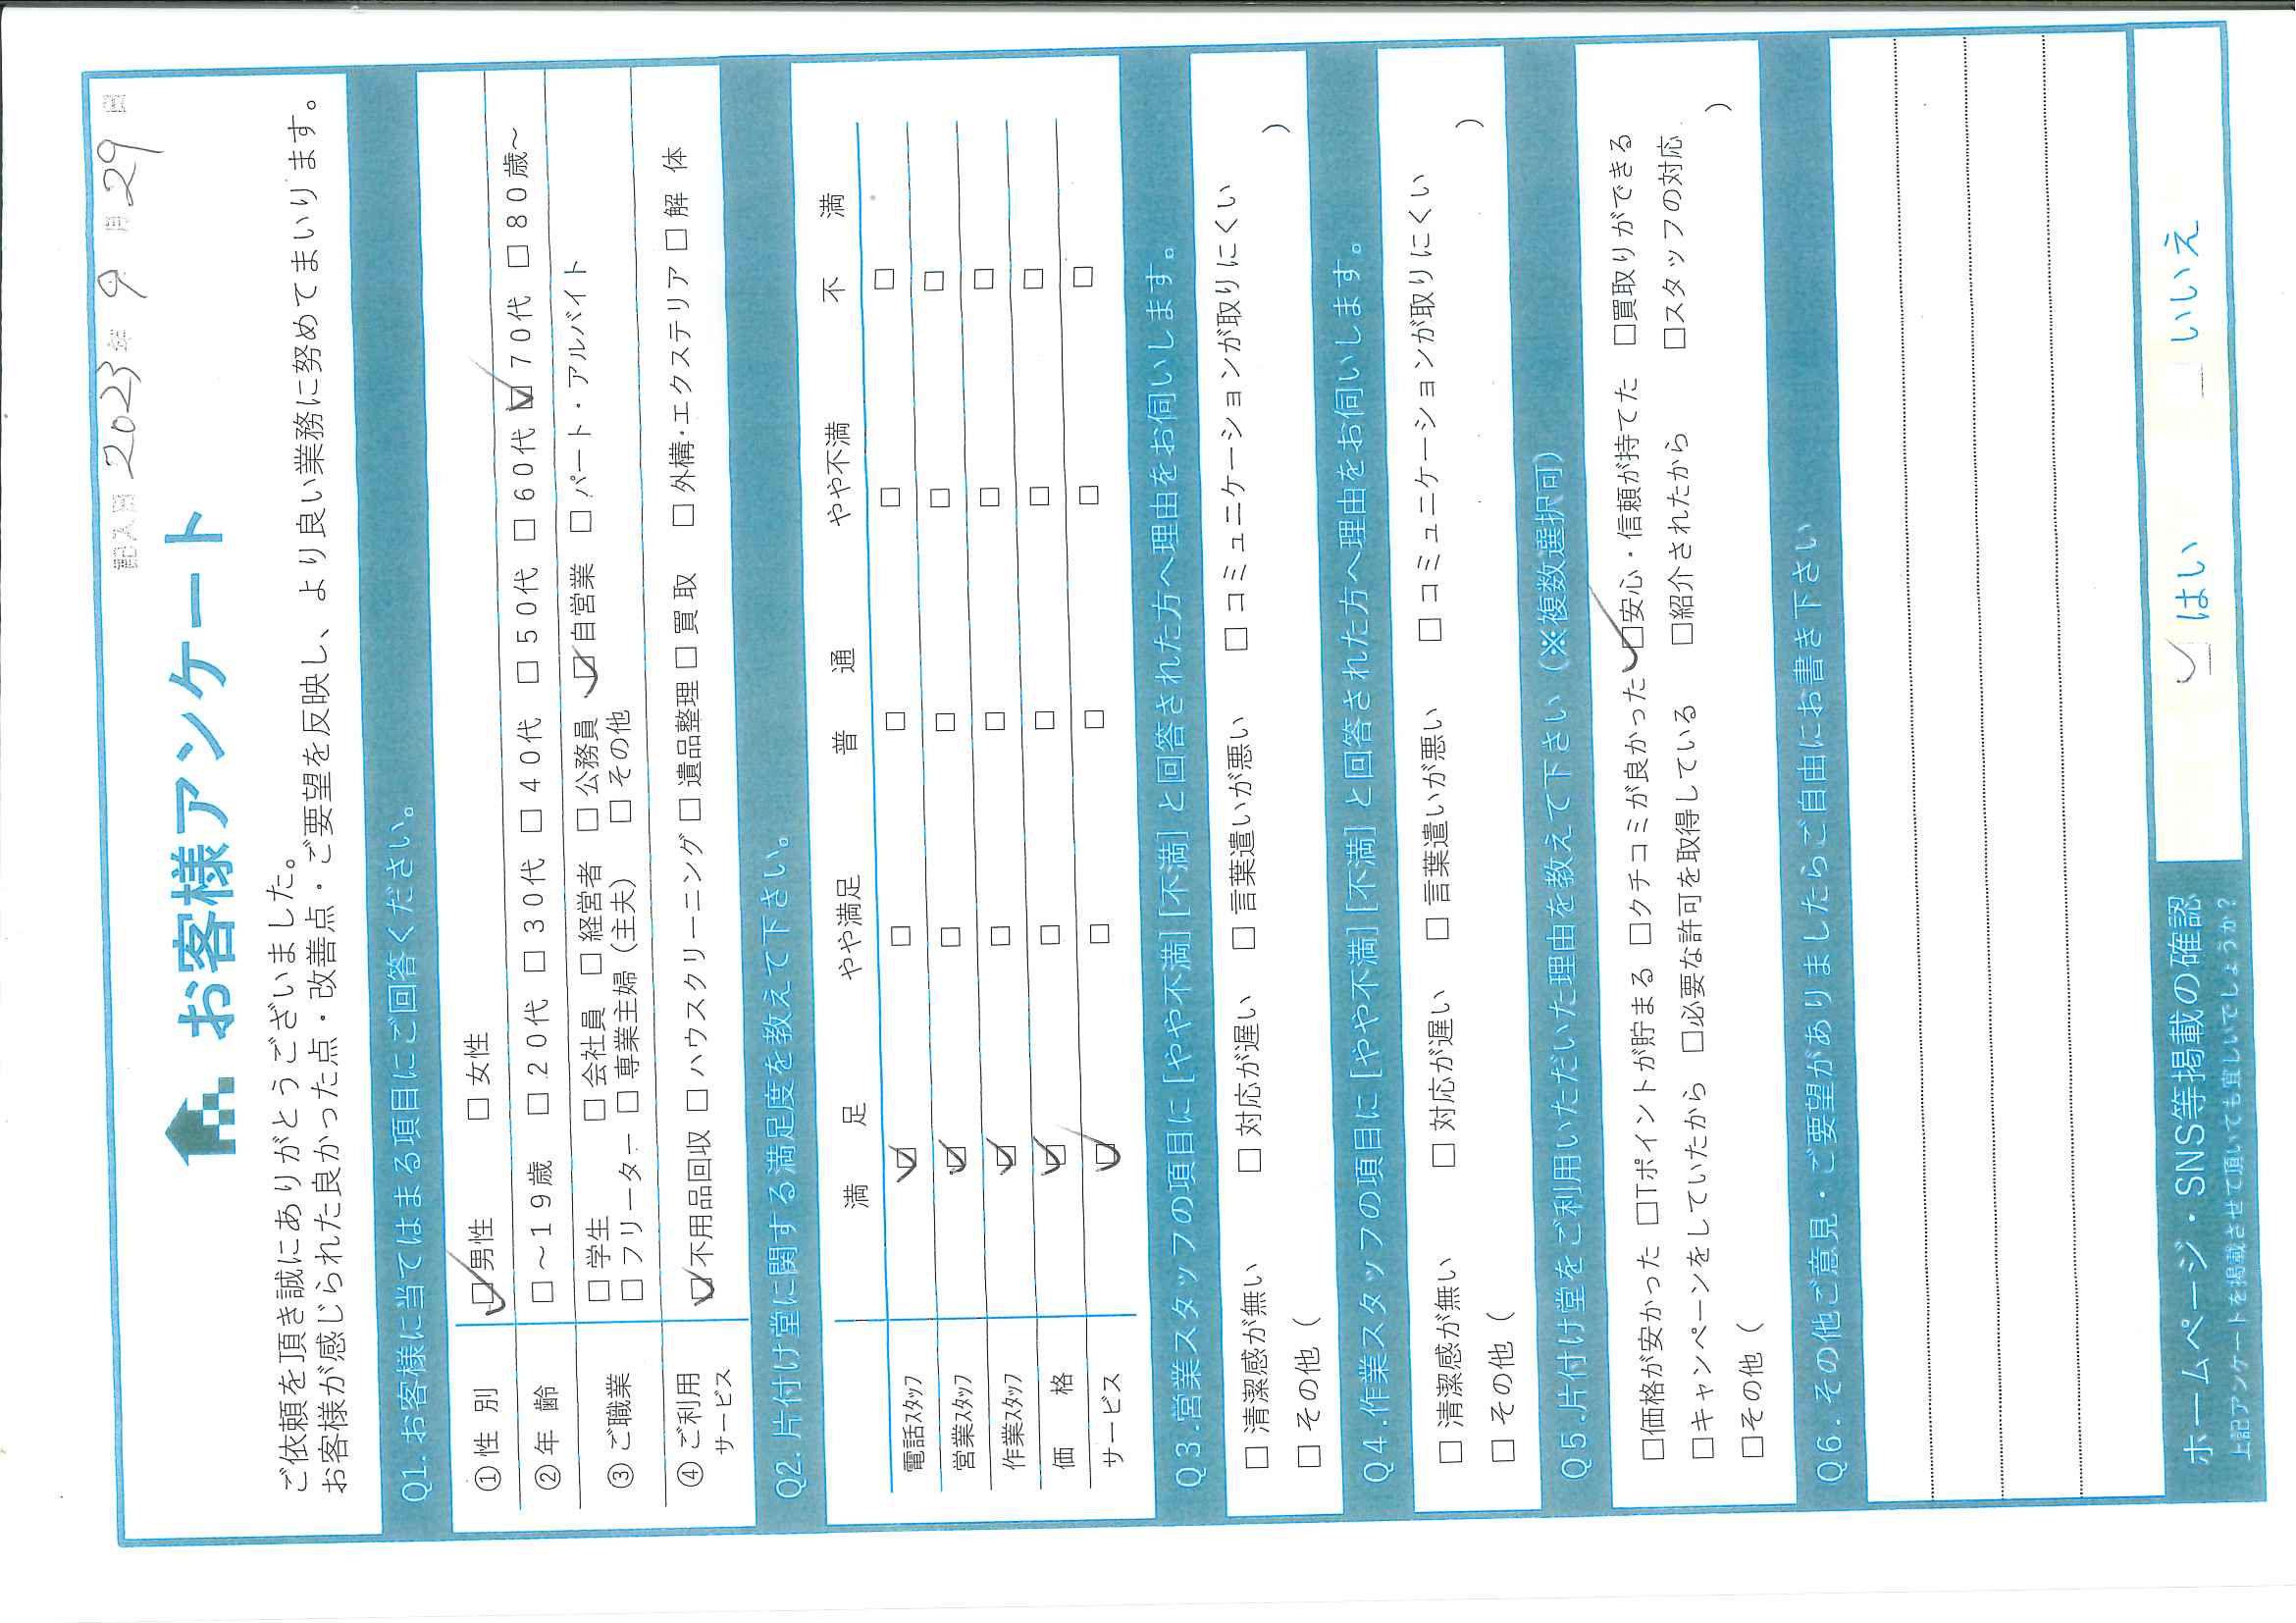 記入日 2023年 9月 29日
お客様アンケート
ご依頼を頂き誠にありがとうございました。
お客様が感じられた良かった点・改善点・ご要望を反映し、より良い業務に努めてまいります。
Q1.お客様に当てはまる項目にご回答ください。
①性 別 ☑男性 □女性
②年 齢 □～19歳 □20代 □30代 □40代 □50代 □60代 ☑70代 □80歳～
③ご職業 □学生 □会社員 □経営者 □公務員 ☑自営業 □パート・アルバイト
□フリーター □専業主婦（主夫） □その他
④ご利用サービス ☑不用品回収 □ハウスクリーニング □遺品整理 □買取 □外構・エクステリア □解 体
Q2.片付け堂に関する満足度を教えて下さい。
満 足 やや満足 普 通 やや不満 不 満
電話スタッフ ☑ □ □ □ □
営業スタッフ ☑ □ □ □ □
作業スタッフ ☑ □ □ □ □
価 格 ☑ □ □ □ □
サービス ☑ □ □ □ □
Q3.営業スタッフの項目に［やや不満］［不満］と回答された方へ理由をお伺いします。
□清潔感が無い □対応が遅い □言葉遣いが悪い □コミュニケーションが取りにくい
□その他（ ）
Q4.作業スタッフの項目に［やや不満］［不満］と回答された方へ理由をお伺いします。
□清潔感が無い □対応が遅い □言葉遣いが悪い □コミュニケーションが取りにくい
□その他（ ）
Q5.片付け堂をご利用いただいた理由を教えて下さい（※複数選択可）
□価格が安かった □Tポイントが貯まる □クチコミが良かった ☑安心・信頼が持てた □買取りができる
□キャンペーンをしていたから □必要な許可を取得している □紹介されたから □スタッフの対応
□その他（ ）
Q6.その他ご意見・ご要望がありましたらご自由にお書き下さい
ホームページ・SNS等掲載の確認
上記アンケートを掲載させて頂いても宜しいでしょうか？
☑はい □いいえ